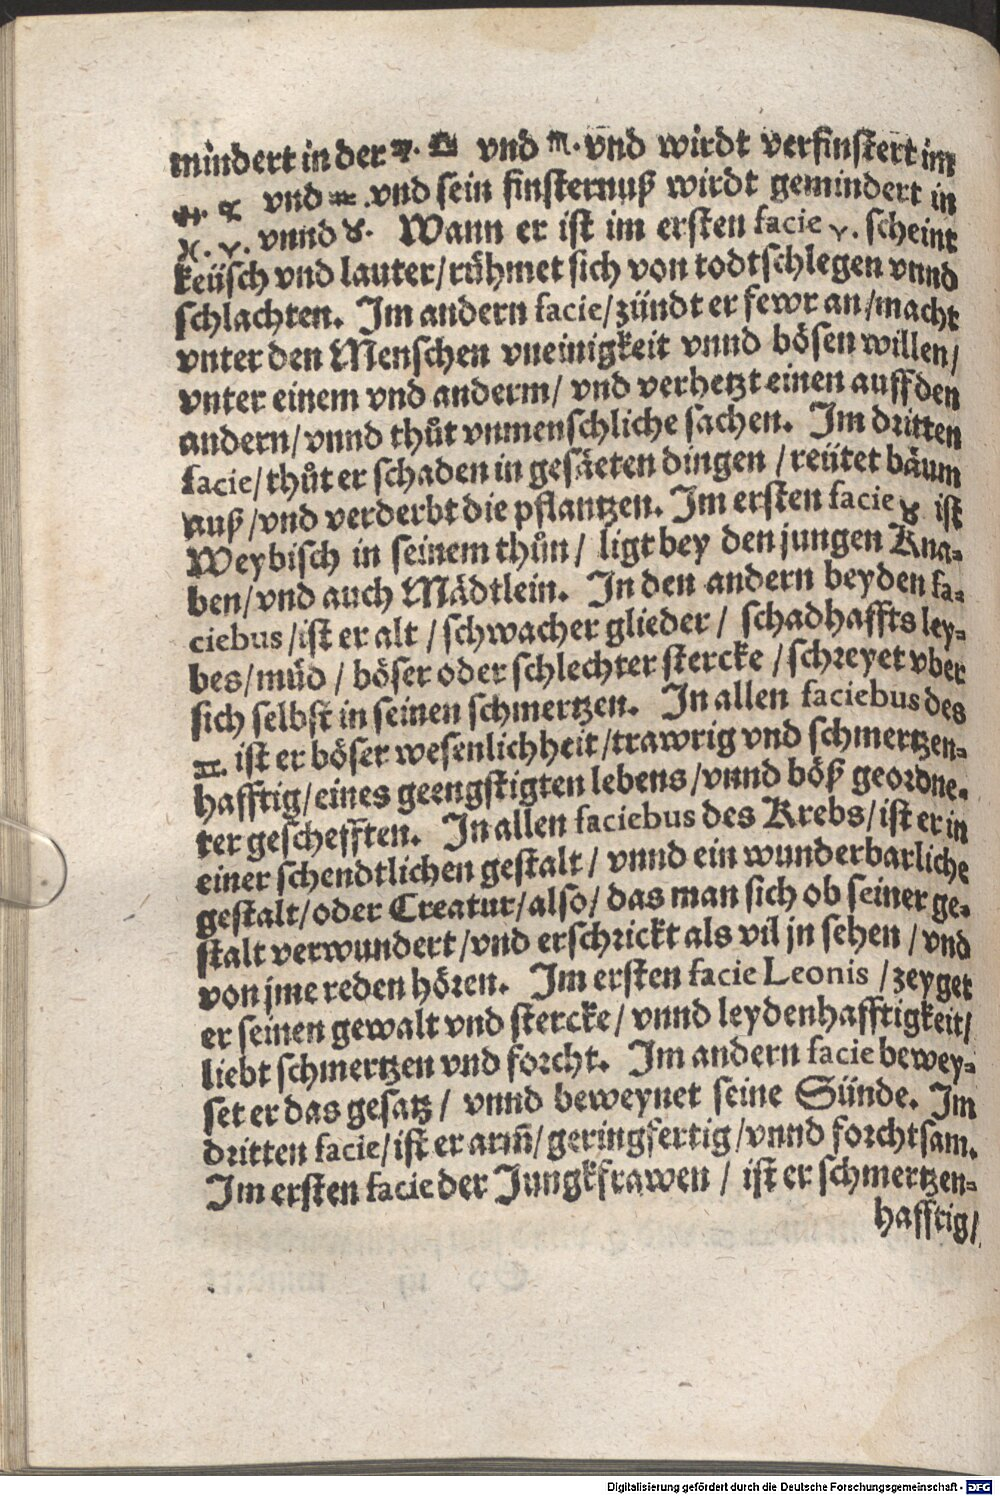 mindert in der ♍. ♎ vnd ♏. vnd wirdt verfinstert im
♐. ♑ vnd ♒. vnd sein finsternuß wirdt gemindert in
♓. ♈. vnnd ♉. Wann er ist im ersten facie ♈. scheint
keüsch vnd lauter/ rühmet sich von todtschlegen vnnd
schlachten. Im andern facie/ zündt er fewr an/ macht
vnter den Menschen vneinigkeit vnnd bösen willen/
vnter einem vnd anderm/ vnd verhetzt einen auff den
andern/ vnnd thůt vnmenschliche sachen. Im dritten
facie/ thůt er schaden in gesäeten dingen / reütet bäum
auß / vnd verderbt die pflantzen. Im ersten facie ♉ ist
Weybisch in seinem thůn / ligt bey den jungen Kna-
ben/ vnd auch Mädtlein. In den andern beyden fa-
ciebus / ist er alt / schwacher glieder / schadhaffts ley-
bes/ müd / böser oder schlechter stercke / schreyet vber
sich selbst in seinen schmertzen. In allen faciebus des
♊. ist er böser wesenlichheit/ trawrig vnd schmertzen-
hafftig/ eines geengstigten lebens / vnnd böß geordne-
ter geschefften. In allen faciebus des Krebs / ist er in
einer schendtlichen gestalt / vnnd ein wunderbarliche
gestalt/ oder Creatur/ also/ das man sich ob seiner ge-
stalt verwundert/ vnd erschrickt als vil jn sehen / vnd
von jme reden hören. Im ersten facie Leonis / zeyget
er seinen gewalt vnd stercke/ vnnd leydenhafftigkeit/
liebt schmertzen vnd forcht. Im andern facie bewey-
set er das gesatz / vnnd beweynet seine Sünde. Im
dritten facie/ ist er arm̄/ geringfertig / vnnd forchtsam.
Im ersten facie der Jungkfrawen / ist er schmertzen-
hafftig/
Digitalisierung gefördert durch die Deutsche Forschungsgemeinschaft - DFG